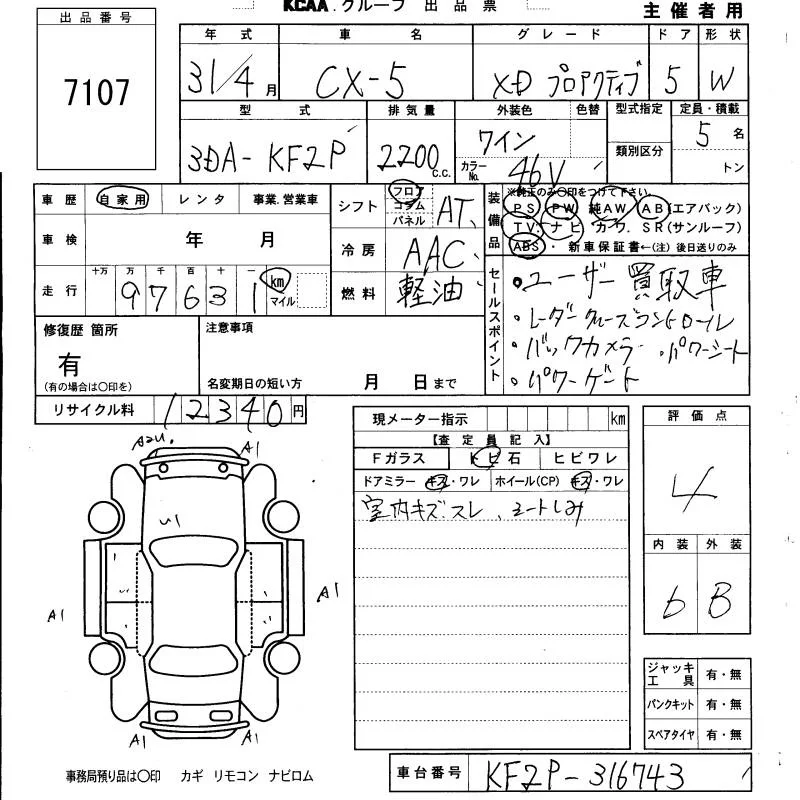 KCAA.グループ 出品票
主催者用
出品番号
7107
年式 車名 グレード ドア 形状
31/4月 CX-5 XD プロアクティブ 5 W
型式 排気量 外装色 色替 型式指定 定員・積載
3DA-KF2P 2200 c.c. ワイン 5名
カラーNo. 46V 類別区分 トン
車歴 自家用 レンタ 事業.営業車
車検 年 月
走行 十万 万 千 百 十 一 km マイル
97631
シフト フロア コラム パネル AT
冷房 AAC
燃料 軽油
装備品
※純正のみ〇印をつけて下さい。
PS PW 純AW AB(エアバック)
TV. ナビ・カワ. SR(サンルーフ)
ABS・ 新車保証書←(注)後日送りのみ
セールスポイント
・ユーザー買取車
・レーダークルーズコントロール
・バックカメラ ・パワーシート
・パワーゲート
修復歴 箇所
有
(有の場合は〇印を)
注意事項
名変期日の短い方 月 日まで
リサイクル料 12340円
現メーター指示 km
【査定員記入】
Fガラス トビ石 ヒビワレ
ドアミラー キズ・ワレ ホイール(CP) キズ・ワレ
室内キズ スレ、シートしみ
評価点
4
内装 外装
b B
ジャッキ工具 有・無
パンクキット 有・無
スペアタイヤ 有・無
A2U. A1
U1
A1
A1
A1 A1
事務局預り品は〇印 カギ リモコン ナビロム
車台番号 KF2P-316743